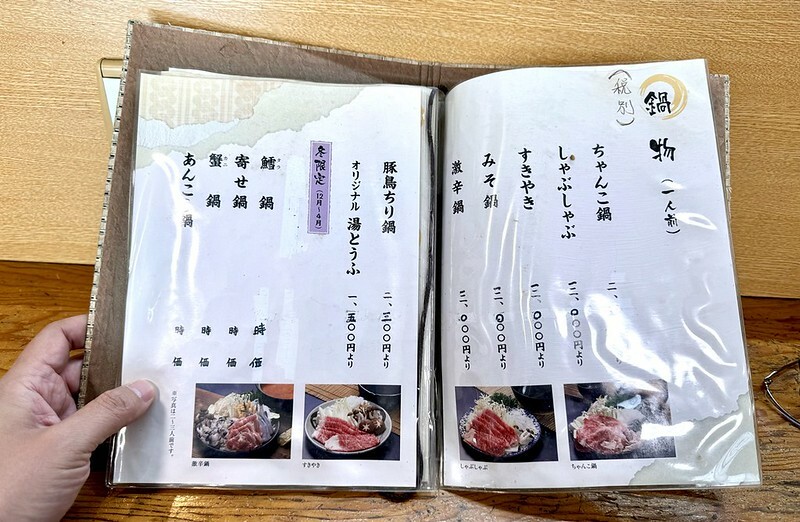 鍋物（一人前）
（税別）
ちゃんこ鍋 二、 より
しゃぶしゃぶ 三、〇〇〇円より
すきやき 三、〇〇〇円より
みそ鍋 二、〇〇〇円より
激辛鍋 二、〇〇〇円より
ちゃんこ鍋
しゃぶしゃぶ
豚鳥ちり鍋 二、三〇〇円より
オリジナル 湯とうふ 一、五〇〇円より
冬限定（12月～4月）
鱈鍋 時価
寄せ鍋 時価
蟹鍋 時価
あんこ 鍋 時価
すきやき
激辛鍋
※写真は二～三人前です。